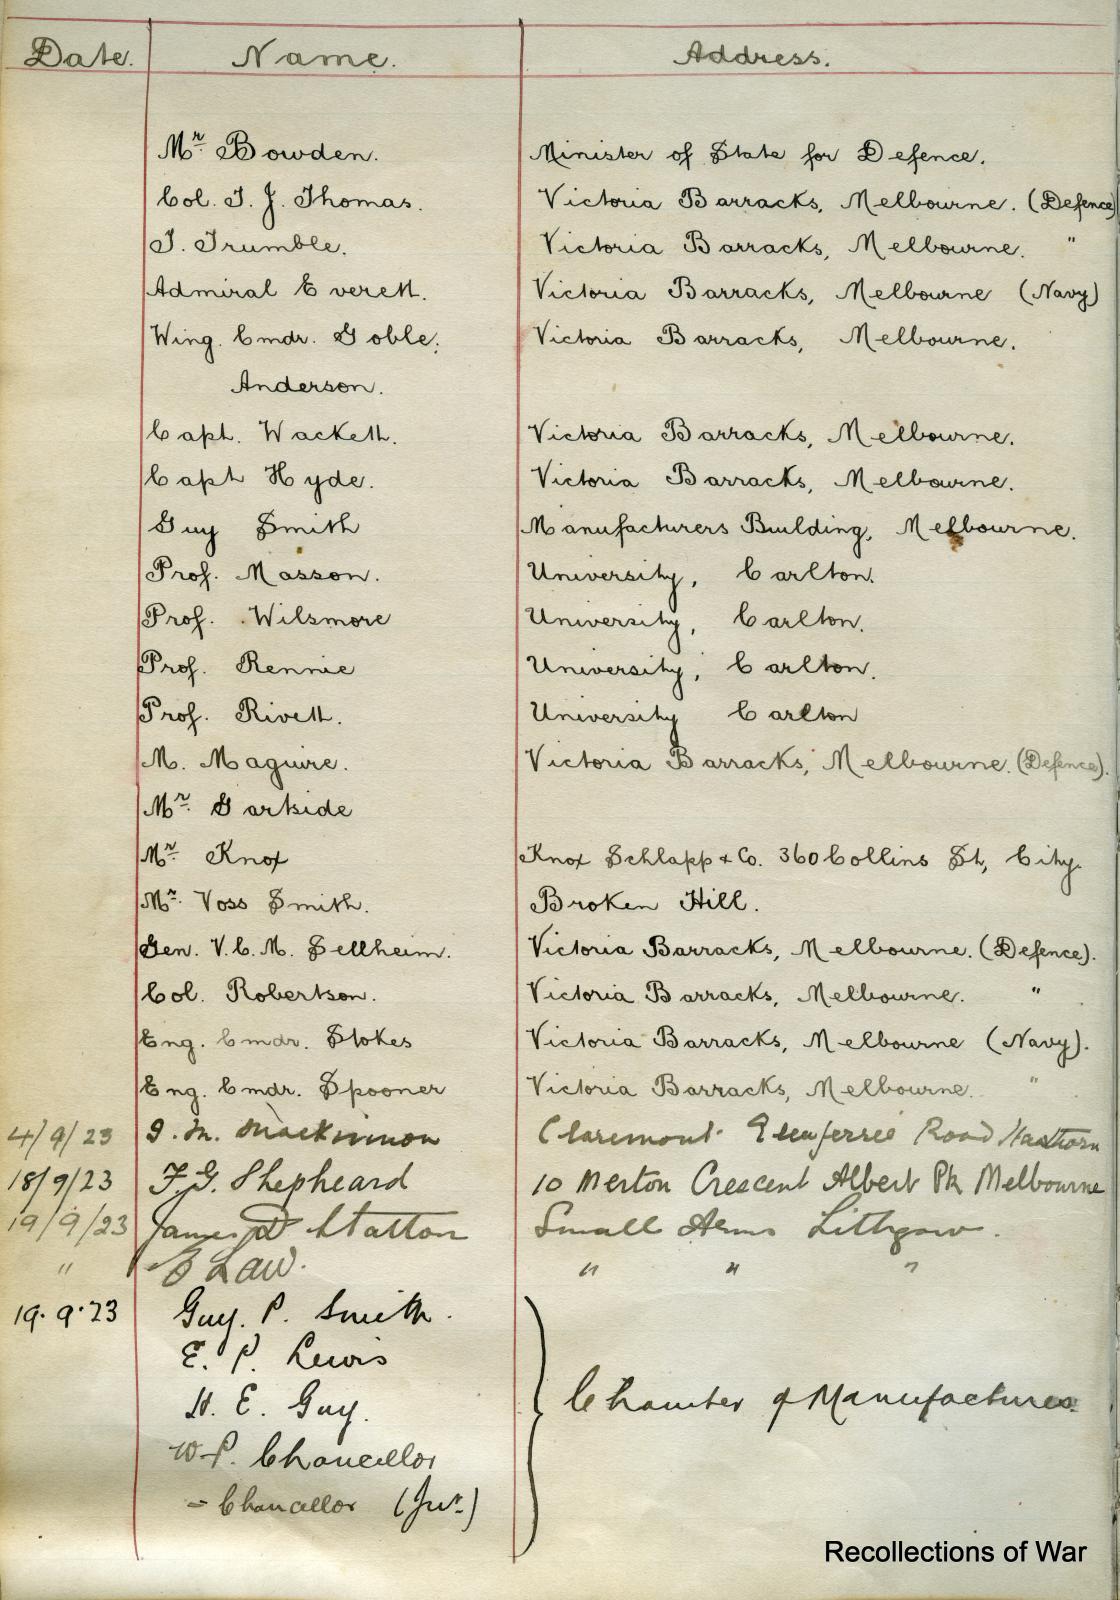 Date. Name. Address.
Mr. Bowden. Minister of State for Defence.
Col. T. J. Thomas. Victoria Barracks, Melbourne. (Defence)
T. Trumble. Victoria Barracks, Melbourne. "
Admiral Everett. Victoria Barracks, Melbourne (Navy)
Wing. Cmdr. Goble. Victoria Barracks, Melbourne.
Anderson.
Capt. Wackett. Victoria Barracks, Melbourne.
Capt Hyde. Victoria Barracks, Melbourne.
Guy Smith Manufacturers Building, Melbourne.
Prof. Masson. University, Carlton.
Prof. Wilsmore University, Carlton.
Prof. Rennie University, Carlton.
Prof. Rivett. University Carlton
M. Maguire. Victoria Barracks, Melbourne. (Defence).
Mr. Gartside
Mr. Knox Knox Schlapp & Co. 360 Collins St, City.
Mr. Voss Smith. Broken Hill.
Gen. V. C. M. Sellheim. Victoria Barracks, Melbourne. (Defence).
Col. Robertson. Victoria Barracks, Melbourne. "
Eng. Cmdr. Stokes Victoria Barracks, Melbourne (Navy).
Eng. Cmdr. Spooner Victoria Barracks, Melbourne. "
4/9/23 Mackinnon Claremont Glenferrie Road Hawthorn
18/9/23 F. G. Shepheard 10 Merton Crescent Albert Pk Melbourne
19/9/23 James Statton Small Arms Lithgow.
" Law. " " "
19.9.23 Guy. P. Smith.
E. P. Lewis
H. E. Guy. Chamber of Manufactures
W. P. Chancellor
- Chancellor (Jnr.)
Recollections of War